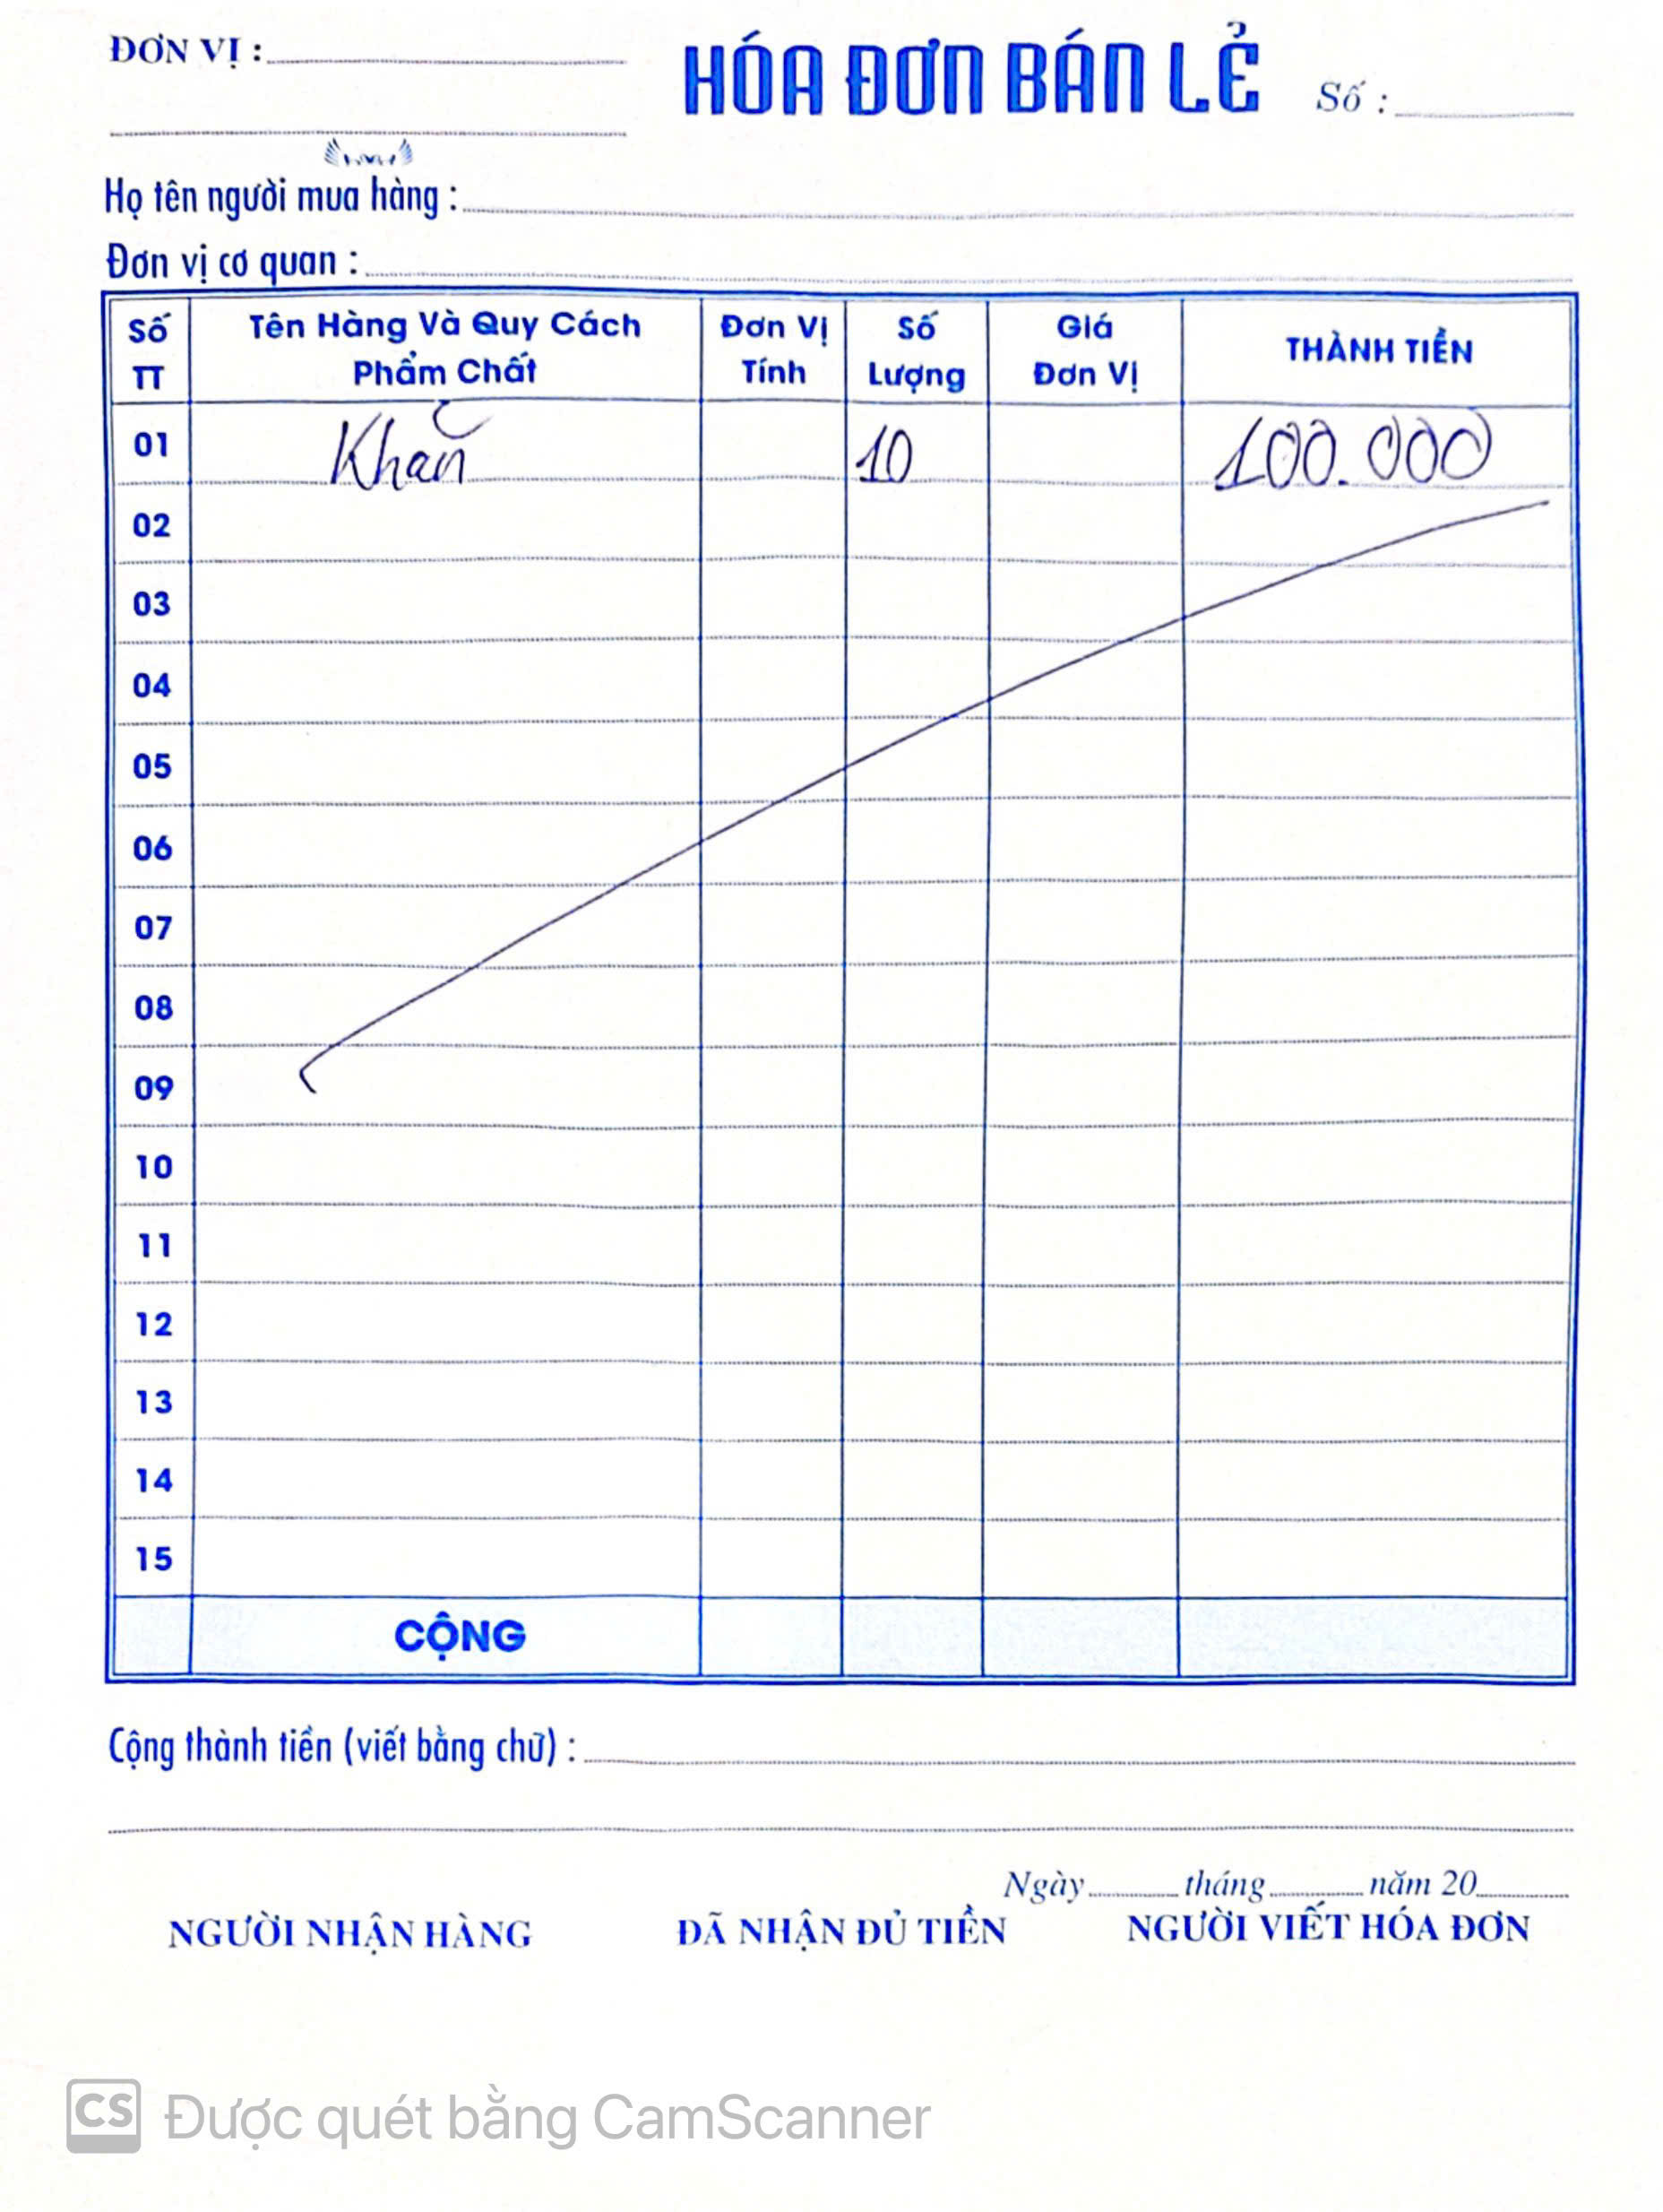 ĐƠN VỊ :
HÓA ĐƠN BÁN LẺ
Số :
Họ tên người mua hàng :
Đơn vị cơ quan :
Số TT Tên Hàng Và Quy Cách Phẩm Chất Đơn Vị Tính Số Lượng Giá Đơn Vị THÀNH TIỀN
01 Khăn 10 100.000
02
03
04
05
06
07
08
09
10
11
12
13
14
15
CỘNG
Cộng thành tiền (viết bằng chữ) :
Ngày tháng năm 20
NGƯỜI NHẬN HÀNG ĐÃ NHẬN ĐỦ TIỀN NGƯỜI VIẾT HÓA ĐƠN
CS Được quét bằng CamScanner